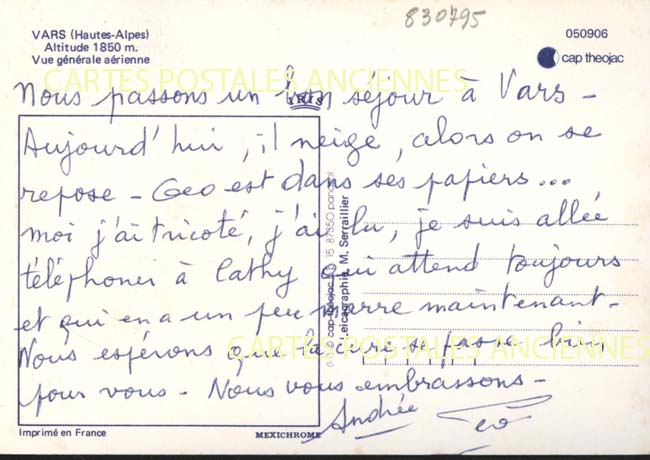 830795
VARS (Hautes-Alpes)
Altitude 1850 m.
Vue générale aérienne
050906
cap theojac
CARTES POSTALES ANCIENNES
IRIS
Nous passons un bon séjour à Vars -
Aujourd'hui, il neige, alors on se
repose - Geo est dans ses papiers...
moi j'ai tricoté, j'ai lu, je suis allée
téléphoner à Cathy qui attend toujours
et qui en a un peu marre maintenant.
Nous espérons que la cure se passe bien
pour vous - Nous vous embrassons -
Andrée
Geo
CARTES POSTALES ANCIENNES
cap-theojac 15 87350 panazol
Leicagraphie, M. Serraillier
Imprimé en France
MEXICHROME